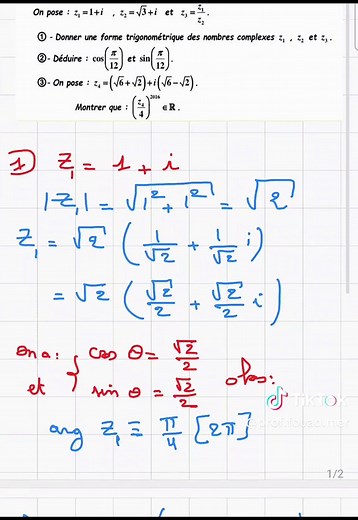 On pose : z₁ = 1 + i , z₂ = √3 + i et z₃ = z₁/z₂
① - Donner une forme trigonométrique des nombres complexes z₁ , z₂ et z₃ .
② - Déduire : cos(π/12) et sin(π/12) .
③ - On pose : z₄ = (√6 + √2) + i(√6 - √2) .
Montrer que : (z₄/4)²⁰¹⁶ ∈ ℝ .
1) Z₁ = 1 + i
|Z₁| = √(1² + 1²) = √2
Z₁ = √2 (1/√2 + 1/√2 i)
= √2 (√2/2 + √2/2 i)
on a : { cos θ = √2/2
et { sin θ = √2/2
TikTok
arg Z₁ ≡ π/4 [2π]
1/2